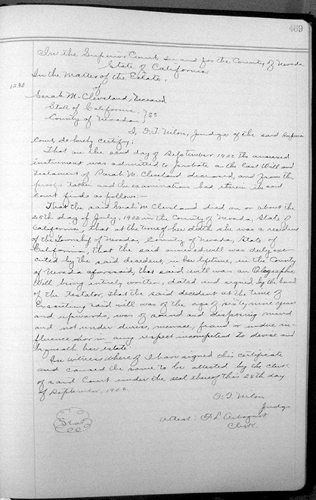 469
In the Superior Court in and for the County of Nevada
State of California
In the Matter of the Estate
of
Sarah M. Cleveland, Deceased
State of California
County of Nevada } SS
I, F. T. Nilon, Judge of the said Superior
Court do hereby certify;
That on the day of September 1902 the annexed
instrument was admitted to probate as the Last Will and
Testament of Sarah M. Cleveland deceased, and from the
proofs taken and the examination had therein the said
Court finds as follows:-
That the said Sarah M. Cleveland died on or about the
20th day of July, 1902 in the County of Nevada, State of
California, that at the time of her death she was a resident
of the Township of Nevada, County of Nevada, State of
California, That the said annexed will was duly exe-
cuted by the said decedent in her lifetime, in the County
of Nevada aforesaid, that said will was an Olographic
Will being entirely written, dated and signed by the hand
of the Testator, that the said decedent at the time of
Executing said will was of the age of sixty nine years
and upwards, was of sound and disposing mind
and not under duress, menace, fraud or undue in-
fluence nor in any respect incompetent to devise and
bequeath her estate.
In witness whereof I have signed this certificate
and caused the same to be attested by the Clerk
of said Court under the seal thereof this 25th day
of September, 1902.
F. T. Nilon
Judge
Attest: F. L. Arbogast
Clerk
Seal